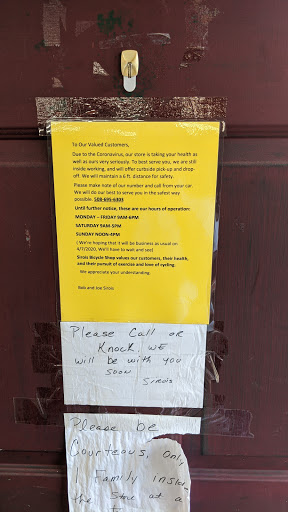 To Our Valued Customers,
Due to the Coronavirus, our store is taking your health as
well as ours very seriously. To best serve you, we are still
inside working, and will offer curbside pick-up and drop-
off. We will maintain a 6 ft. distance for safety.
Please make note of our number and call from your car.
We will do our best to serve you in the safest way
possible. 508-695-6303
Until further notice, these are our hours of operation:
MONDAY – FRIDAY 9AM-6PM
SATURDAY 9AM-5PM
SUNDAY NOON-4PM
( We're hoping that it will be business as usual on
4/7/2020, We'll have to wait and see)
Sirois Bicycle Shop values our customers, their health,
and their pursuit of exercise and love of cycling.
We appreciate your understanding.
Bob and Joe Sirois
Please Call or
Knock. WE
will be with you
soon
Sirois
Please be
Courteous, Only
1 Family inside
the store at a